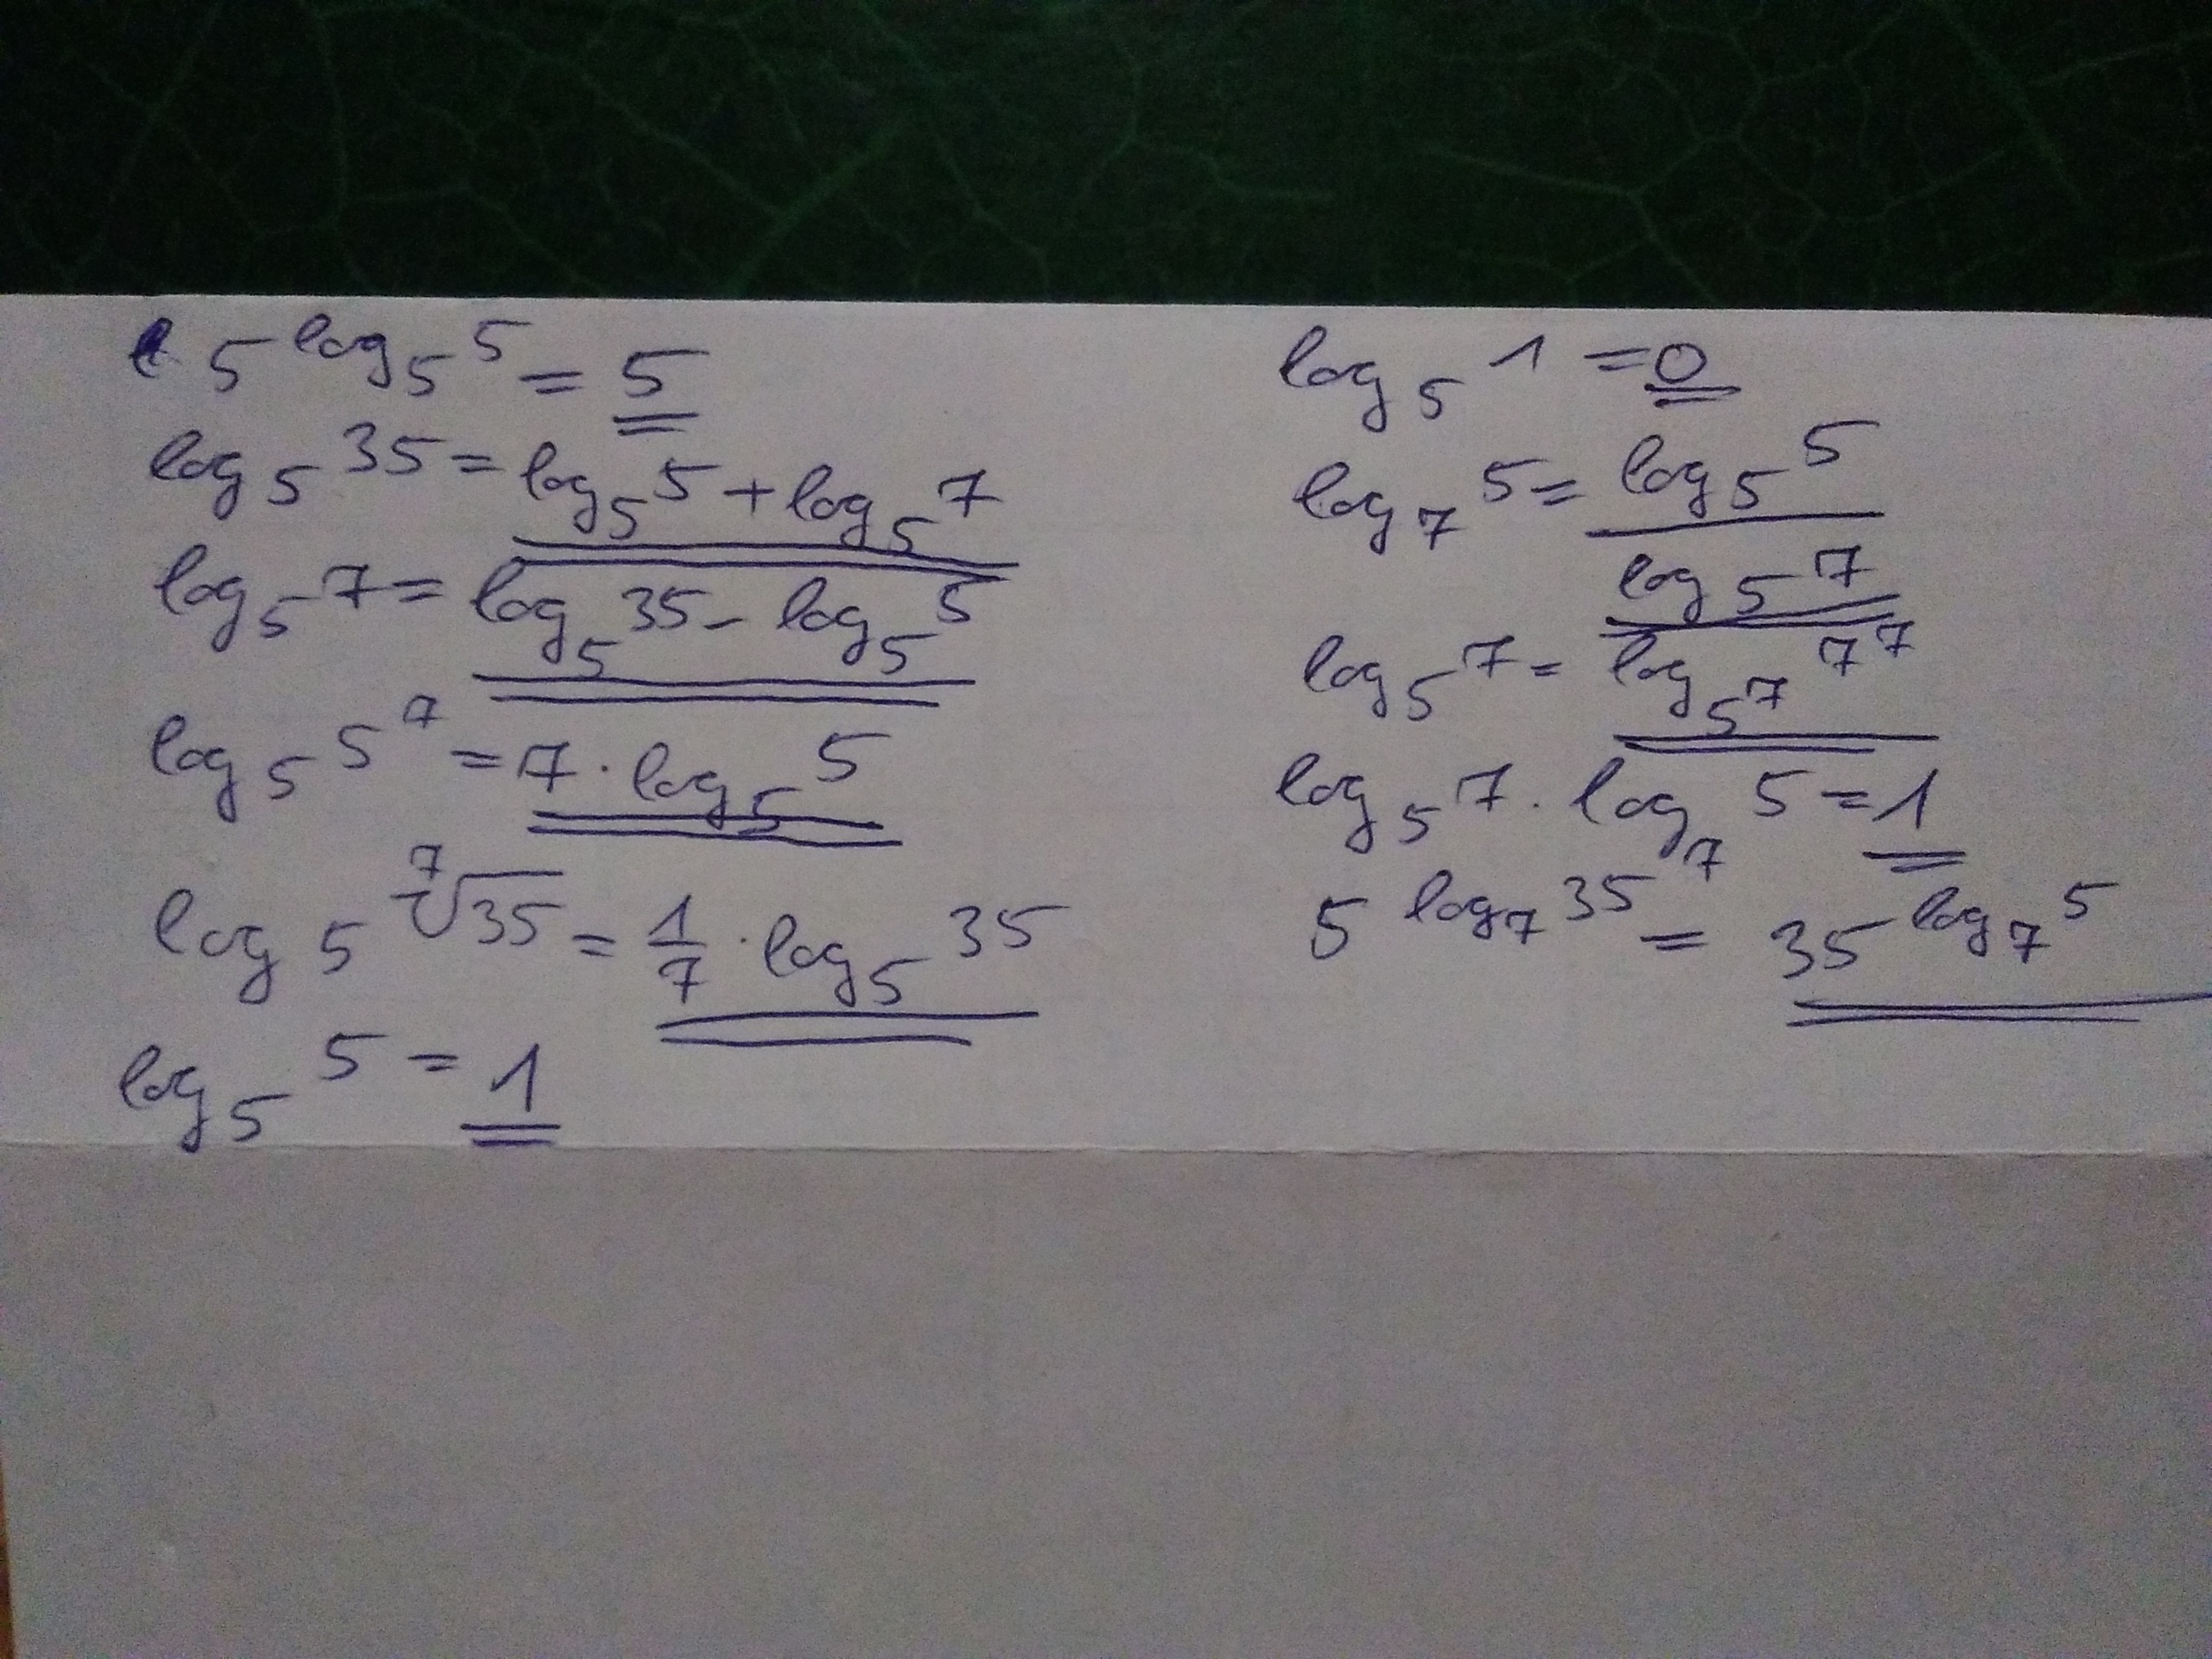 5^{log_5 5} = 5
log_5 35 = log_5 5 + log_5 7
log_5 7 = log_5 35 - log_5 5
log_5 5^7 = 7 · log_5 5
log_5 ⁷√35 = 1/7 · log_5 35
log_5 5 = 1
log_5 1 = 0
log_7 5 = log_5 5 / log_5 7
log_5 7 = log_{5^7} 7^7
log_5 7 · log_7 5 = 1
5^{log_7 35} = 35^{log_7 5}